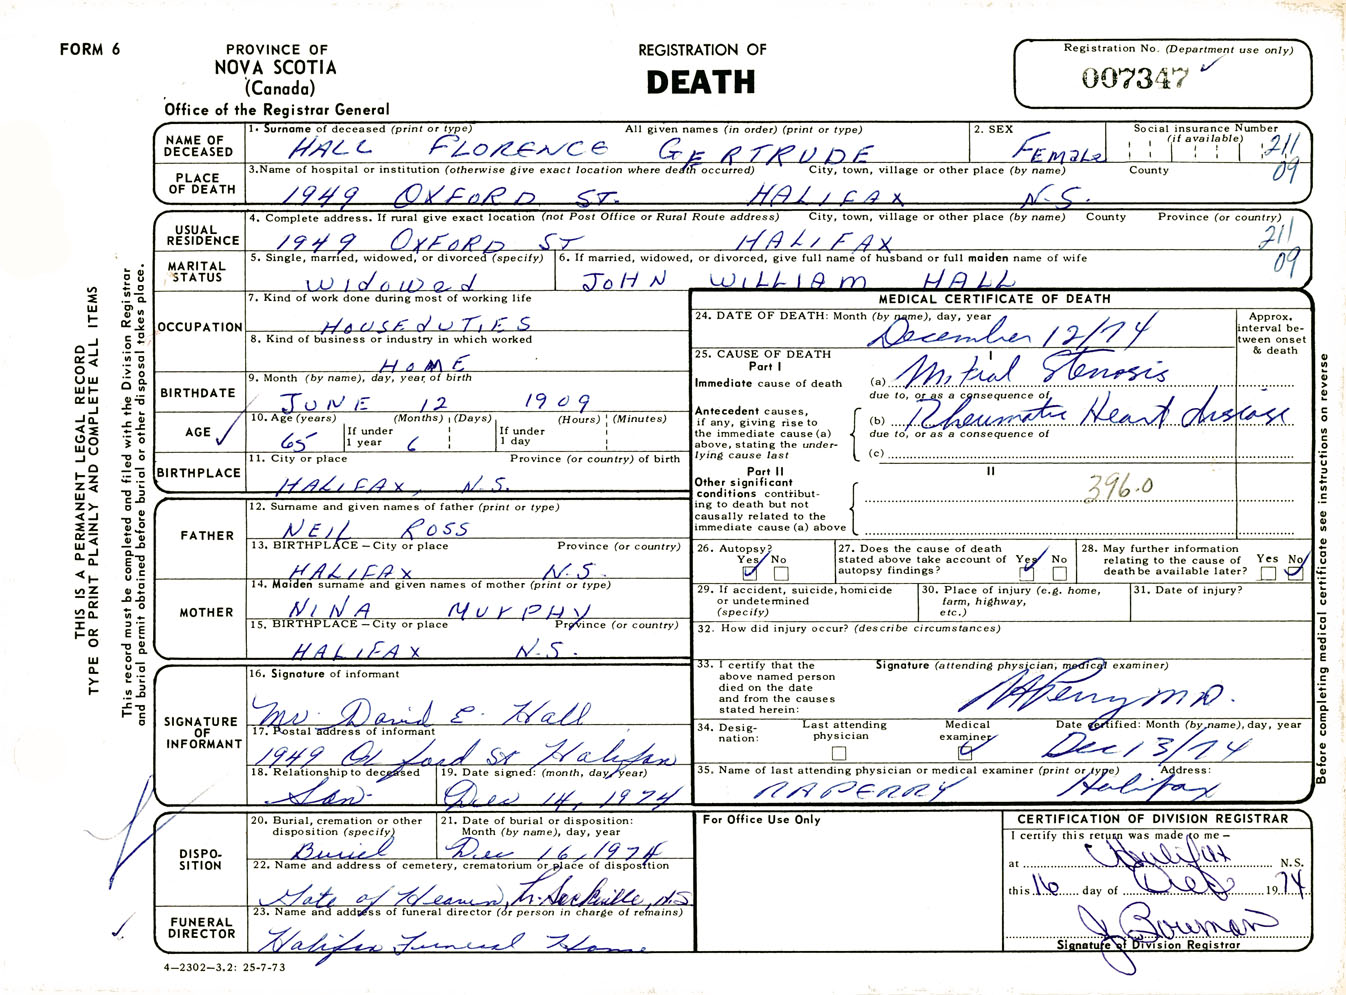 FORM 6
PROVINCE OF
NOVA SCOTIA
(Canada)
Office of the Registrar General
REGISTRATION OF
DEATH
Registration No. (Department use only)
007347
NAME OF DECEASED
1. Surname of deceased (print or type) All given names (in order) (print or type)
HALL FLORENCE GERTRUDE
2. SEX
FEMALE
Social insurance Number (if available)
211
09
PLACE OF DEATH
3. Name of hospital or institution (otherwise give exact location where death occurred) City, town, village or other place (by name) County
1949 OXFORD ST. HALIFAX N.S.
USUAL RESIDENCE
4. Complete address. If rural give exact location (not Post Office or Rural Route address) City, town, village or other place (by name) County Province (or country)
1949 OXFORD ST HALIFAX
211
09
MARITAL STATUS
5. Single, married, widowed, or divorced (specify)
WIDOWED
6. If married, widowed, or divorced, give full name of husband or full maiden name of wife
JOHN WILLIAM HALL
OCCUPATION
7. Kind of work done during most of working life
HOUSEDUTIES
8. Kind of business or industry in which worked
HOME
BIRTHDATE
9. Month (by name), day, year of birth
JUNE 12 1909
AGE
10. Age (years) (Months) (Days) (Hours) (Minutes)
65 If under 1 year 6 If under 1 day
BIRTHPLACE
11. City or place Province (or country) of birth
HALIFAX, N.S.
FATHER
12. Surname and given names of father (print or type)
NEIL ROSS
13. BIRTHPLACE – City or place Province (or country)
HALIFAX N.S.
MOTHER
14. Maiden surname and given names of mother (print or type)
NINA MURPHY
15. BIRTHPLACE – City or place Province (or country)
HALIFAX N.S.
SIGNATURE OF INFORMANT
16. Signature of informant
Mr. David E. Hall
17. Postal address of informant
1949 Oxford St Halifax
18. Relationship to deceased
Son
19. Date signed: (month, day, year)
Dec 14, 1974
DISPO-
SITION
20. Burial, cremation or other disposition (specify)
Burial
21. Date of burial or disposition: Month (by name), day, year
Dec 16, 1974
22. Name and address of cemetery, crematorium or place of disposition
Gate of Heaven, Lr. Sackville, N.S
FUNERAL DIRECTOR
23. Name and address of funeral director (or person in charge of remains)
Halifax Funeral Home
4–2302–3.2: 25-7-73
MEDICAL CERTIFICATE OF DEATH
24. DATE OF DEATH: Month (by name), day, year
December 12/74
Approx. interval between onset & death
25. CAUSE OF DEATH
Part I
I
Immediate cause of death
(a) Mitral Stenosis
due to, or as a consequence of
Antecedent causes, if any, giving rise to the immediate cause (a) above, stating the underlying cause last
(b) Rheumatic Heart disease
due to, or as a consequence of
(c)
Part II
II
Other significant conditions contributing to death but not causally related to the immediate cause (a) above
396.0
26. Autopsy?
Yes No
27. Does the cause of death stated above take account of autopsy findings?
Yes No
28. May further information relating to the cause of death be available later?
Yes No
29. If accident, suicide, homicide or undetermined (specify)
30. Place of injury (e.g. home, farm, highway, etc.)
31. Date of injury?
32. How did injury occur? (describe circumstances)
33. I certify that the above named person died on the date and from the causes stated herein:
Signature (attending physician, medical examiner)
RAPerry M.D.
34. Designation:
Last attending physician
Medical examiner
Date certified: Month (by name), day, year
Dec 13/74
35. Name of last attending physician or medical examiner (print or type) Address:
RAPERRY Halifax
For Office Use Only
CERTIFICATION OF DIVISION REGISTRAR
I certify this return was made to me –
at Halifax N.S.
this 16 day of Dec 1974
J Bowman
Signature of Division Registrar
THIS IS A PERMANENT LEGAL RECORD
TYPE OR PRINT PLAINLY AND COMPLETE ALL ITEMS
This record must be completed and filed with the Division Registrar
and burial permit obtained before burial or other disposal takes place.
Before completing medical certificate see instructions on reverse